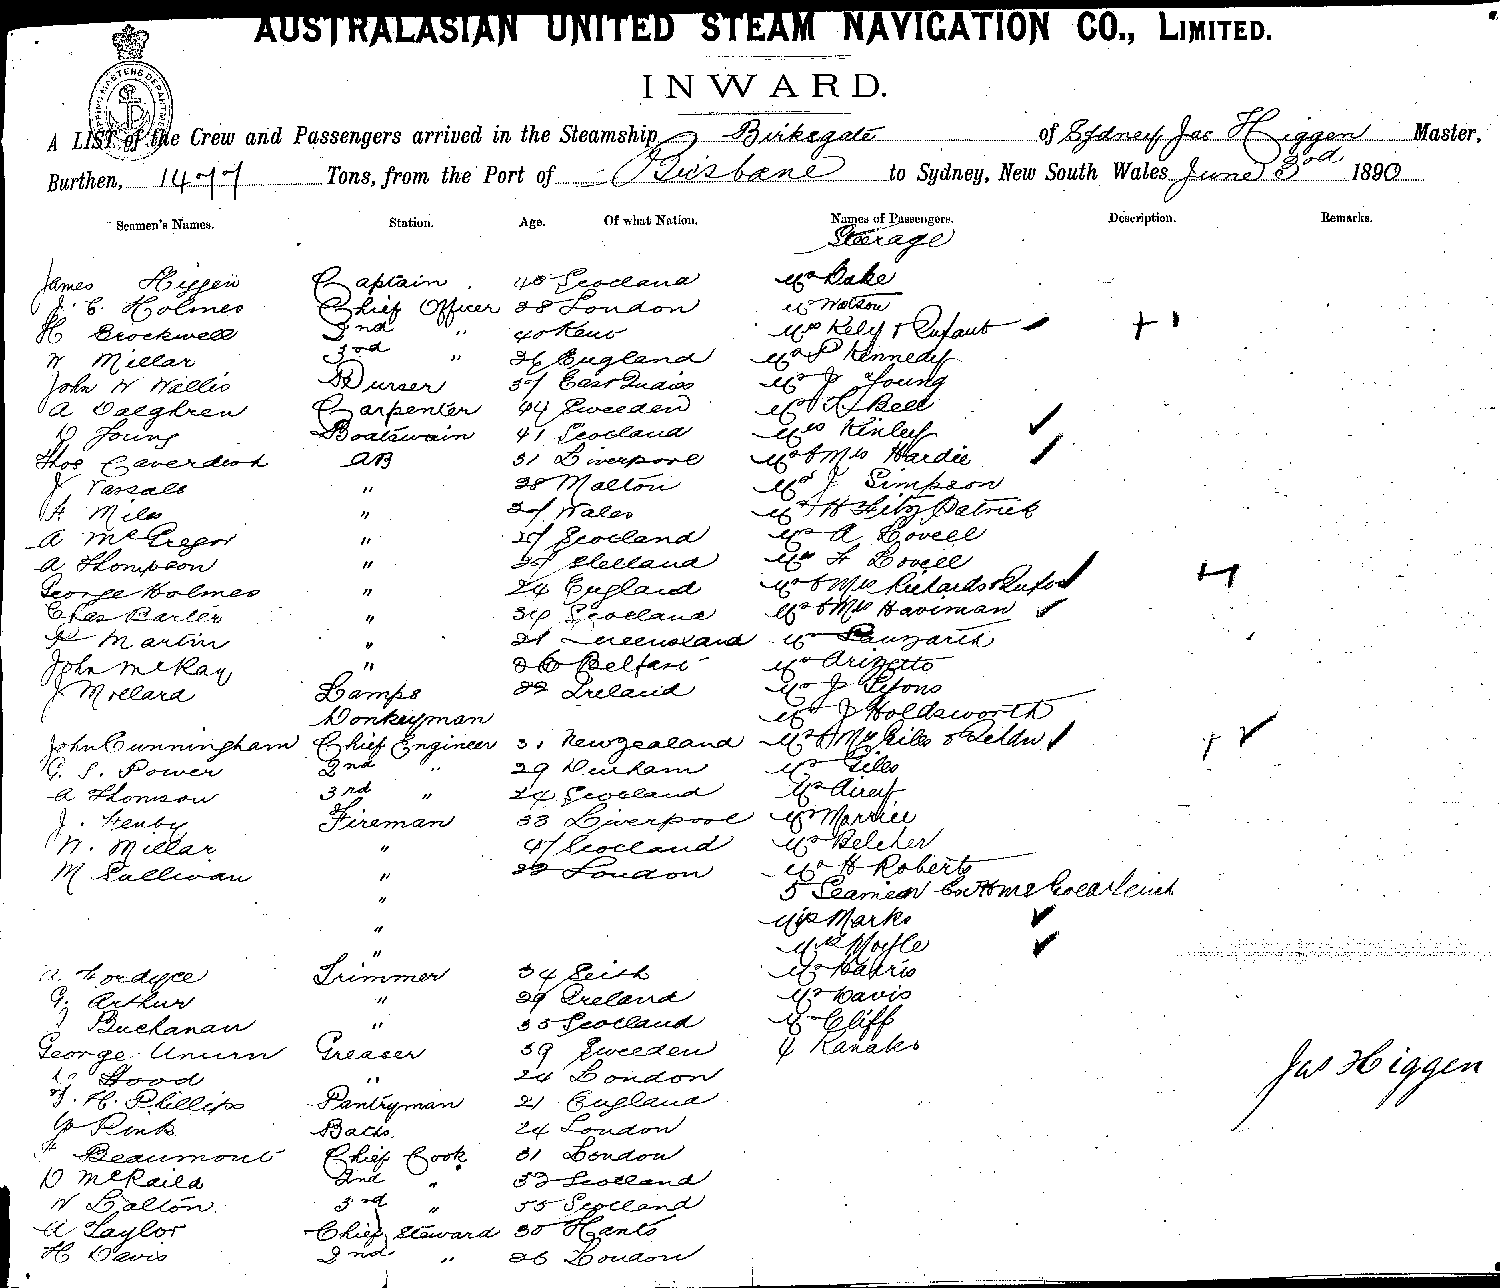 AUSTRALASIAN UNITED STEAM NAVIGATION CO., LIMITED.
INWARD.
A LIST of the Crew and Passengers arrived in the Steamship Birksgate of Sydney Jas Higgen Master,
Burthen, 1477 Tons, from the Port of Brisbane to Sydney, New South Wales June 3rd 1890
Seamen's Names. Station. Age. Of what Nation. Names of Passengers. Description. Remarks.
Steerage
James Higgen Captain 48 Scotland Mr Dake
J. C. Holmes Chief Officer 28 London Mr Watson
H Brockwell 2nd " 40 Kent Mrs Kely & Infant
W Millar 3rd " 26 England Mr P Kennedy
John W Wallis Purser 37 East Indies Mr J Young
A Dalghren Carpenter 44 Sweeden Mr H Bell
D Young Boatswain 41 Scotland Mrs Kinley
Thos Caverdish AB 31 Liverpool Mr & Mrs Hardie
J Vassalo " 28 Malton Mr J Simpson
H Mils " 27 Wales Mr H Fitz Patrick
A McGregor " 27 Scotland Mr A Lovell
A Thompson " 27 Mr H Lovell
George Holmes " 24 England Mr & Mrs Richards & Infant
Chas Barler " 34 Scotland Mr & Mrs Haviman
Martin " 21 Queensland Mr
John McKay " 26 Belfast Mr Arizetto
J Mollard Lamps 22 Ireland Mr J Lyons
Donkeyman Mr J Holdsworth
John Cunningham Chief Engineer 31 New Zealand Mr & Mrs Giles & Childn
G. S. Power 2nd " 29 Durham Mr Giles
A Thomson 3rd " 24 Scotland Mr Airey
J. Henby Fireman 33 Liverpool Mr Morrice
W. Millar " 47 Scotland Mr Belcher
M Sullivan " 22 London Mr H Roberts
" 5 Seamen
" Mrs Marks
" Mrs Moyle
A Fordyce Trimmer 34 Leith Mr Harris
G. Arthur " 29 Ireland Mr Davis
J Buchanan " 35 Scotland Mr Cliff
George Unurn Greaser 39 Sweeden 4 Kanaks
Hood " 24 London Jas Higgen
H. Phillips Pantryman 21 England
Pink Baths 24 London
Beaumont Chief Cook 31 London
D McKaild 2nd " 53 Scotland
W Dalton 3rd " 55 Scotland
A Taylor Chief Steward 30 Hants
H Davis 2nd " 26 London